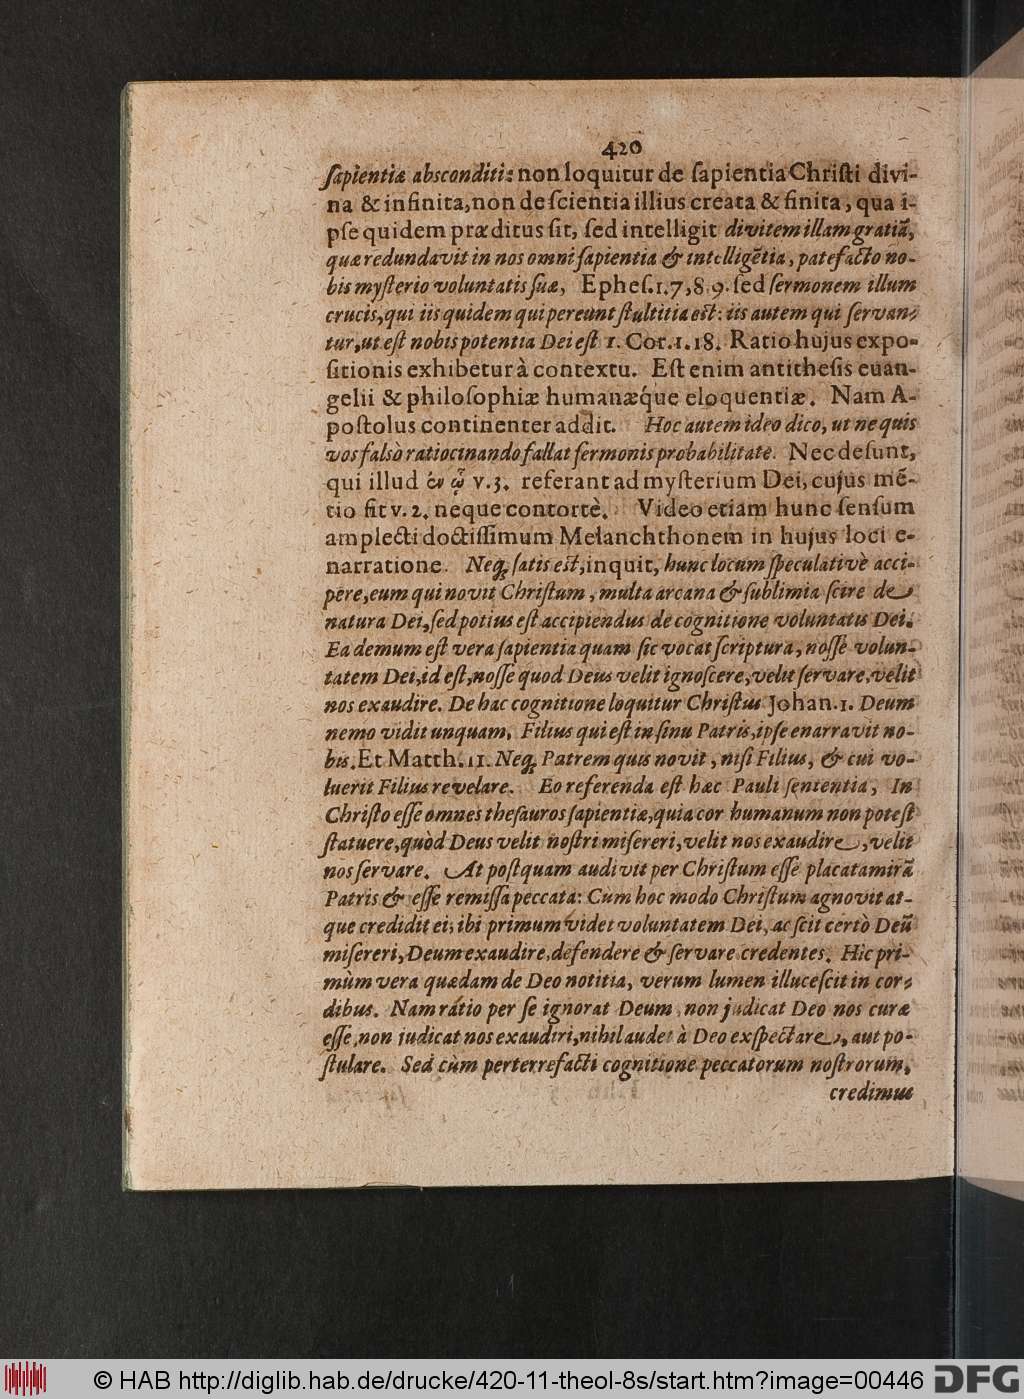 420
ſapientiæ absconditi: non loquitur de ſapientia Chriſti divi-
na & infinita, non de ſcientia illius creata & finita, qua i-
pſe quidem præditus ſit, ſed intelligit divitem illam gratiã,
quæ redundavit in nos omni ſapientia & intelligẽtia, patefacto no-
bis myſterio voluntatis ſuæ, Epheſ. 1. 7, 8. 9. ſed ſermonem illum
crucis, qui iis quidem qui pereunt ſtultitia est: iis autem qui ſervan-
tur, ut eſt nobis potentia Dei eſt 1. Cor. 1. 18. Ratio hujus expo-
ſitionis exhibetur à contextu. Eſt enim antitheſis euan-
gelii & philoſophiæ humanæq́ue eloquentiæ. Nam A-
poſtolus continenter addit. Hoc autem ideo dico, ut ne quis
vos falsò ratiocinando fallat ſermonis probabilitate. Nec deſunt,
qui illud ἐν ᾧ v. 3. referant ad myſterium Dei, cujus mẽ-
tio fit v. 2. neque contortè. Video etiam hunc ſenſum
amplecti doctiſſimum Melanchthonem in hujus loci e-
narratione. Neq; ſatis est, inquit, hunc locum ſpeculativè acci-
pere, eum qui novit Chriſtum, multa arcana & ſublimia ſcire de
natura Dei, ſed potius eſt accipiendus de cognitione voluntatis Dei.
Ea demum eſt vera ſapientia quam ſic vocat ſcriptura, noſſe volun-
tatem Dei, id eſt, noſſe quod Deus velit ignoſcere, velit ſervare, velit
nos exaudire. De hac cognitione loquitur Chriſtus Johan. 1. Deum
nemo vidit unquam, Filius qui eſt in ſinu Patris, ipſe enarravit no-
bis. Et Matth. 11. Neq; Patrem quis novit, niſi Filius, & cui vo-
luerit Filius revelare. Eo referenda eſt hæc Pauli ſententia, In
Chriſto eſſe omnes theſauros ſapientiæ, quia cor humanum non poteſt
ſtatuere, quòd Deus velit noſtri miſereri, velit nos exaudire, velit
nos ſervare. At poſtquam audivit per Chriſtum eſſe placatam irã
Patris & eſſe remiſſa peccata: Cum hoc modo Chriſtum agnovit at-
que credidit ei; ibi primum videt voluntatem Dei, ac ſcit certò Deũ
miſereri, Deum exaudire, defendere & ſervare credentes. Hic pri-
mùm vera quædam de Deo notitia, verum lumen illuceſcit in cor-
dibus. Nam ratio per ſe ignorat Deum, non judicat Deo nos curæ
eſſe, non iudicat nos exaudiri, nihil audet à Deo exſpectare, aut po-
ſtulare. Sed cùm perterrefacti cognitione peccatorum noſtrorum,
credimus
© HAB http://diglib.hab.de/drucke/420-11-theol-8s/start.htm?image=00446
DFG